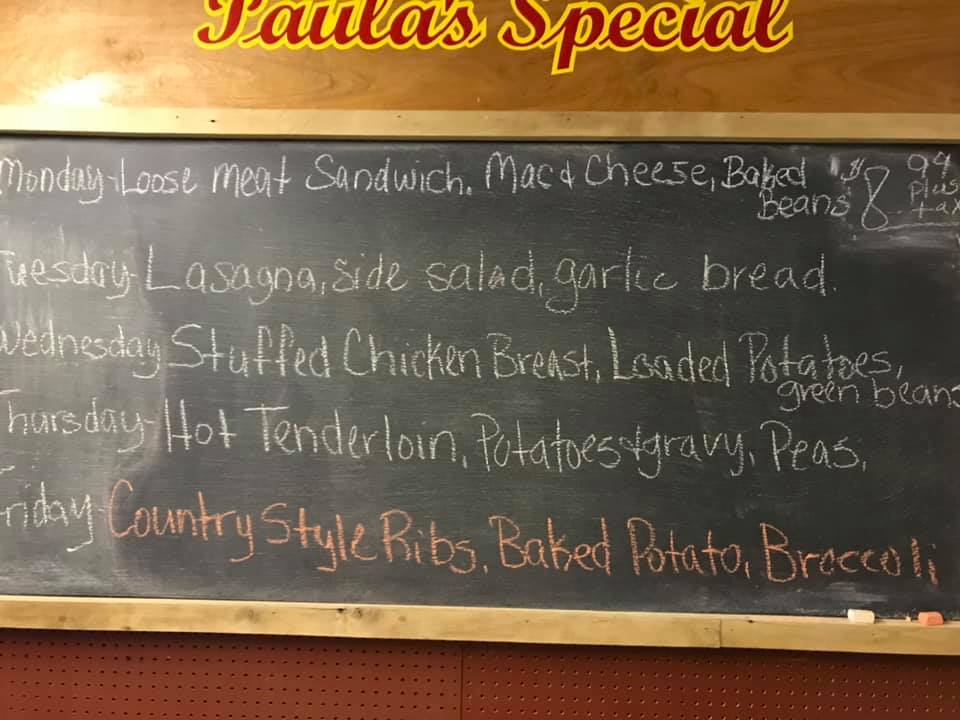 Paula's Special
Monday-Loose meat Sandwich, Mac & Cheese, Baked Beans $8 94 plus tax
Tuesday-Lasagna, side salad, garlic bread.
Wednesday Stuffed Chicken Breast, Loaded Potatoes, green beans
Thursday-Hot Tenderloin, Potatoes & gravy, Peas,
Friday-Country Style Ribs, Baked Potato, Broccoli